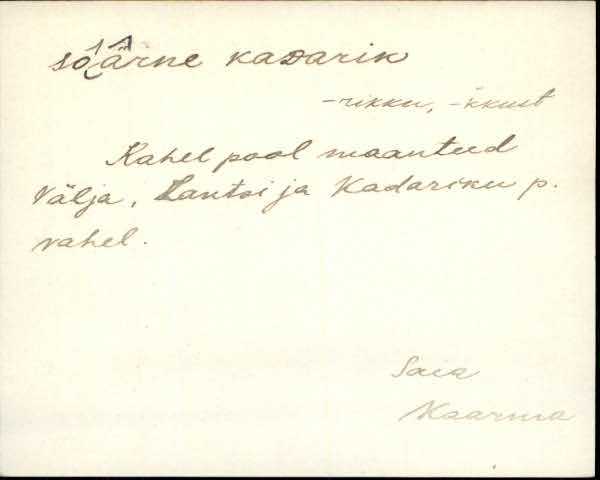 soäärne kadarik
-rikku, -kkust
Kahel pool maanteed
Välja, Lantsi ja Kadariku p.
vahel.
Saia
Kaarma